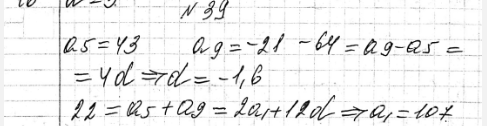 N 39
a5=43 a9=-21 -64=a9-a5=
=4d⇒d=-1,6
22=a5+a9=2a1+12d⇒a1=107